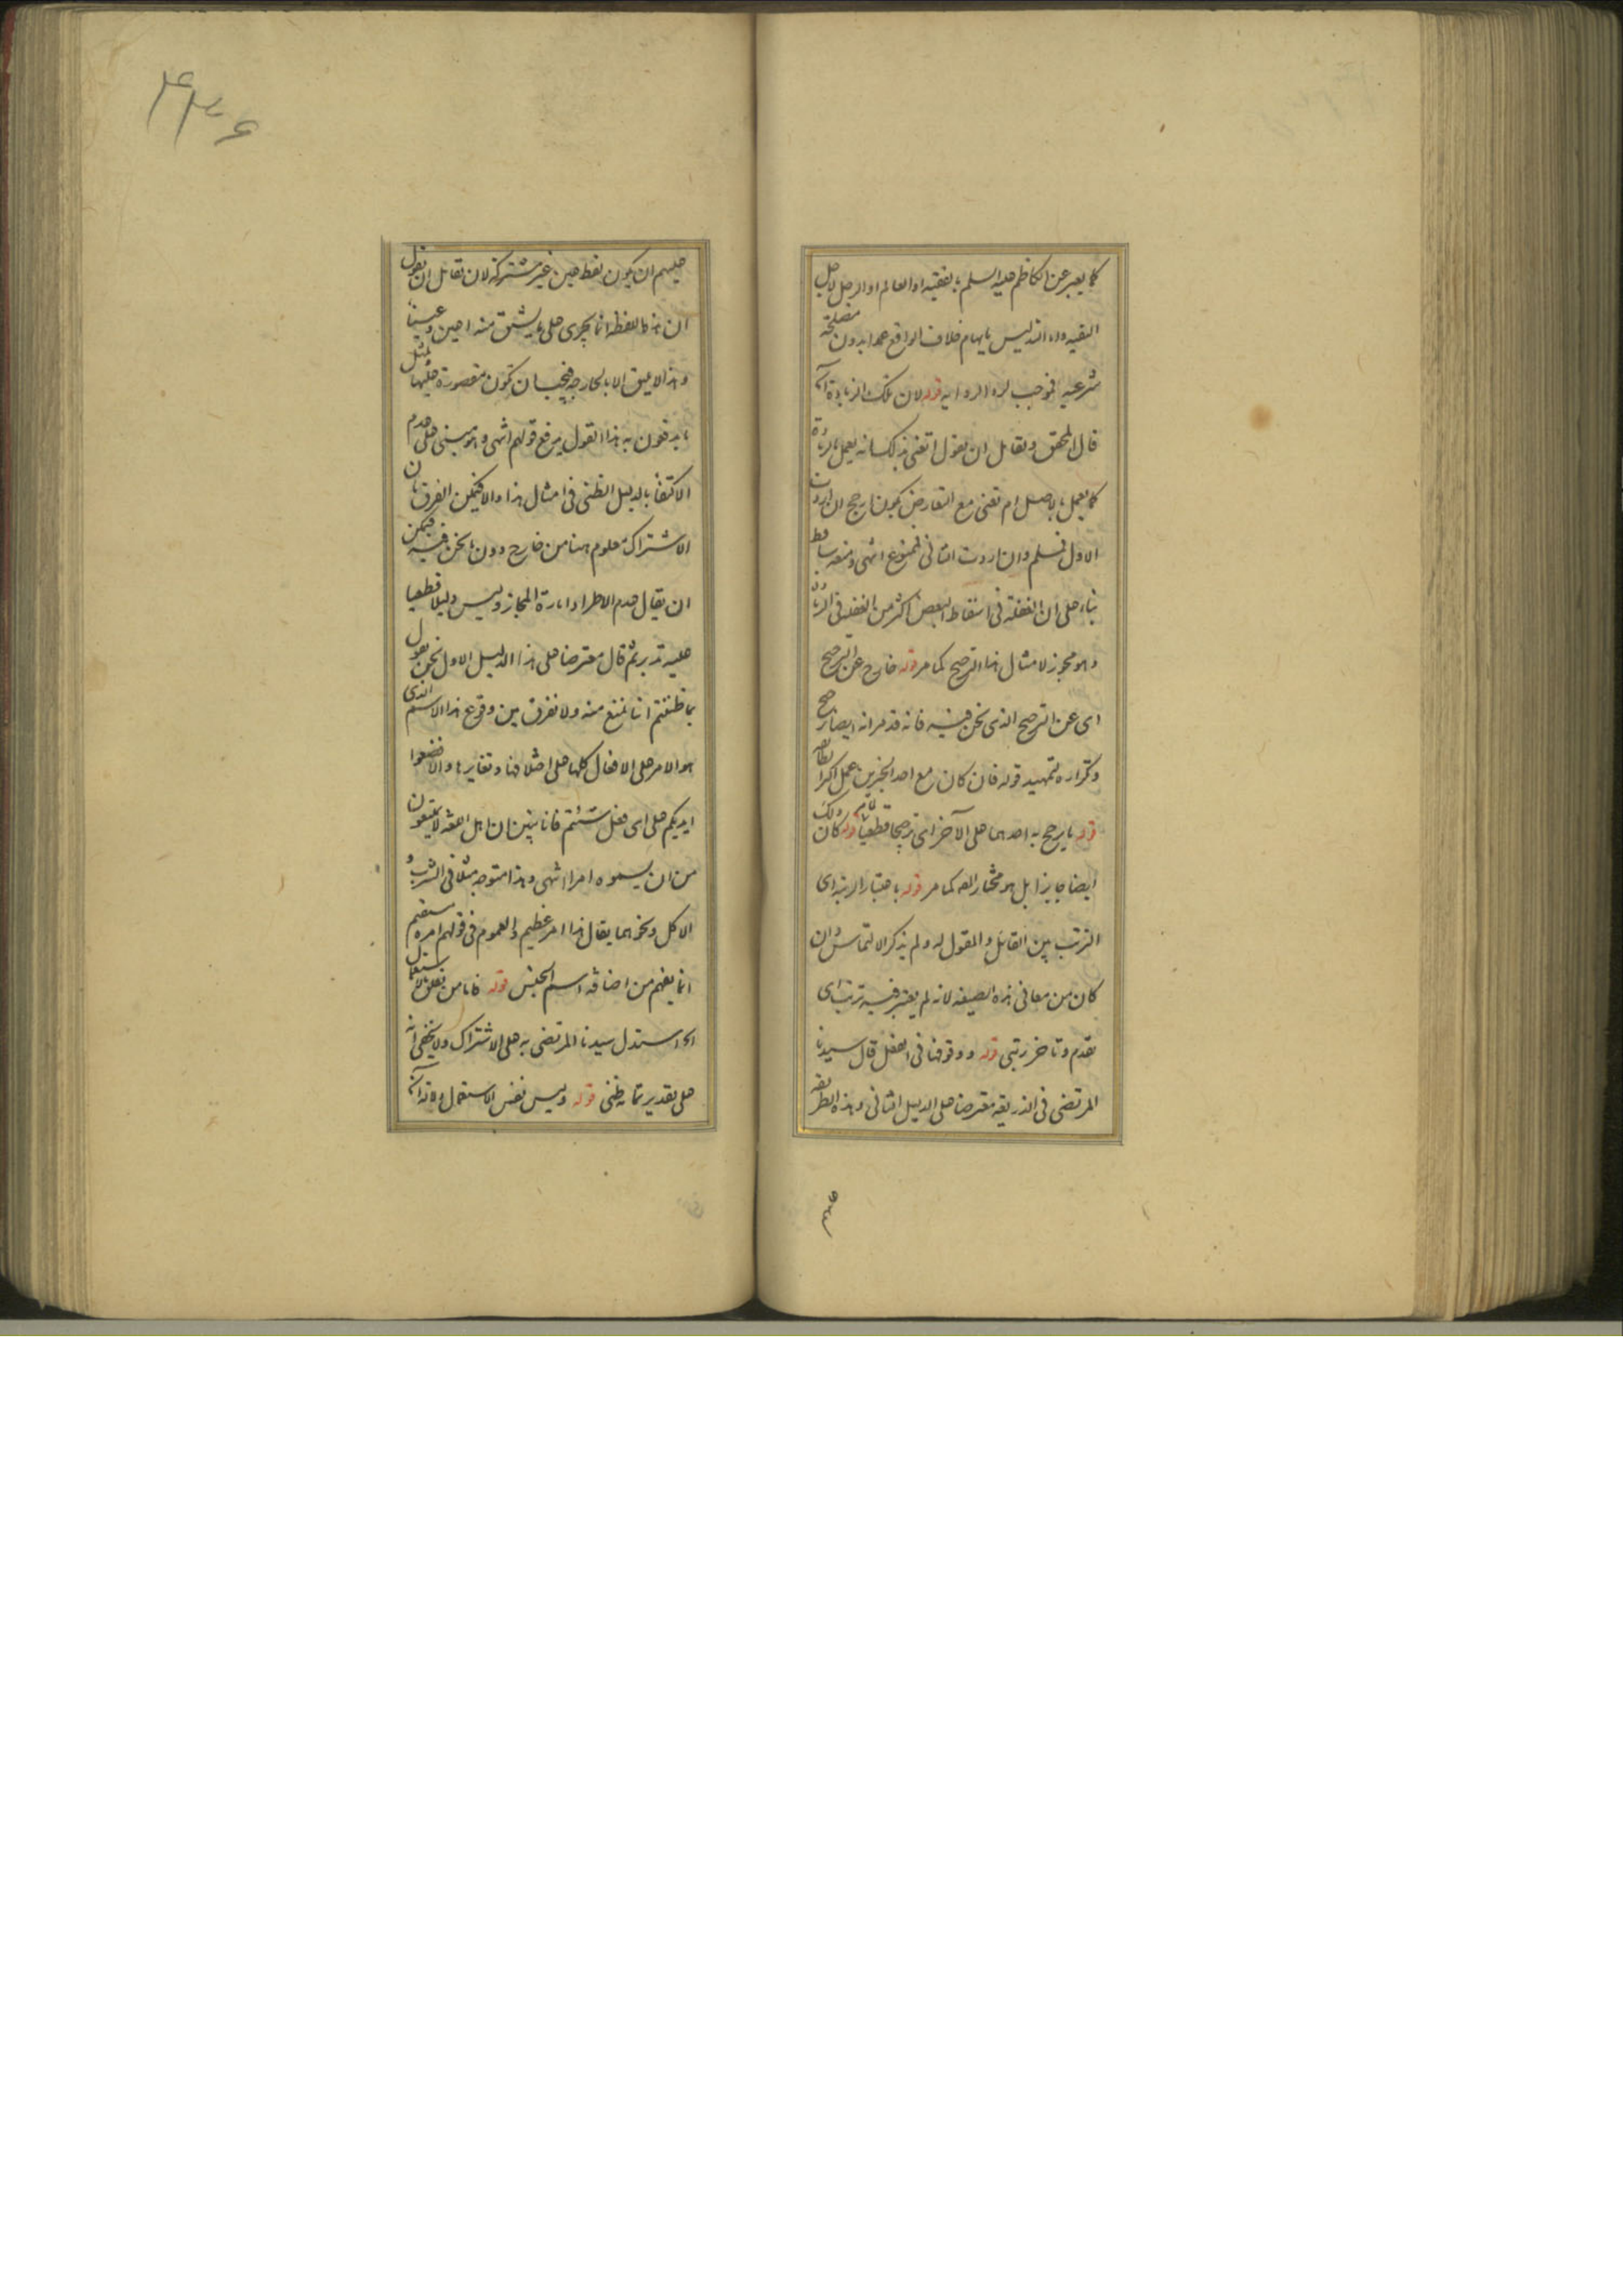 كما يعبر عن الكاظم عليه السلم بالفقيه او العالم او الرجل لاجل
التقيه واما التدليس بايهام خلاف الواقع عمدا بدون مصلحة
شرعيه فموجب لرد الروايه قوله لان تلك الزيادة آه
قال المحقق ولقائل ان يقول اتعنى بذلك انه يعمل بالزيادة
كما يعمل بالاصل ام تعنى مع التعارض يكون ارجح ان اردت
الاول فمسلم وان اردت الثانى فممنوع انتهى ومنعه ساقط
بناء على ان الغفلة فى اسقاط البعض اكثر من الغفلة فى الزيادة
وهو مجوز لامثال هذا الترجيح كما مر قوله خارج عن الترجيح
اى عن الترجيح الذى نحن فيه فانه قد مر انه ايضا
وتكراره لتمهيد قوله فان كان مع احد الخبرين عمل اكثر الطائفة
قوله ما يرجح به احدهما على الآخر اى ترجيحا قطعيا قوله كان ذلك
ايضا جايزا بل هو مختار المص كما مر قوله باعتبار الرتبة اى
الترتب بين القائل والمقول له ولم يذكر الالتماس وان
كان من معانى هذه الصيغه لانه لم يعتبر فيه ترتب اى
تقدم وتاخر رتبى قوله ووقوفنا فى الفعل قال سيدنا
المرتضى فى الذريعه معترضا على الدليل الثانى وهذه الطريقه
۴۳۶
عليهم ان يكون لفظ عين غير مشتركة لان لقائل ان يقول
ان هذا اللفظه انما يجرى على ما يشتق منه اعين وعينا
وهذا لا يليق الا بالجارحه فيجب ان تكون مقصورة عليها بمثل
ما يدفعون به هذا القول يدفع قولهم انتهى وهو مبنى على عدم
الاكتفا بالدليل الظنى فى امثال هذا والا فيمكن الفرق بان
الاشتراك معلوم هنا من خارج دون ما نحن فيه فيمكن
ان يقال عدم الاطراد امارة المجاز وليس دليلا قطعيا
عليه تدبر ثم قال معترضا على هذا الدليل الاول نحن نقول
بما ظننتم انا نمتنع منه ولا نفرق بين وقوع هذا الاسم الذى
هو الامر على الافعال كلها على اختلافها وتغايرها والا فضعوا
ايديكم على اى فعل شئتم فانا نبين ان اهل اللغه لا يمتنعون
من ان يسموه امرا انتهى وهذا متوجه مثلا فى الشرب و
الاكل ونحوهما يقال هذا امر عظيم والعموم فى قولهم امره مستقيم
انما يفهم من اضافة اسم الجنس قوله فانا من تعلق بالاستعمال
الخ استدل سيدنا المرتضى به على الاشتراك ولا يخفى انه
على تقدير تمامه ظنى قوله وليس نفس الاستعمال دلالة آه